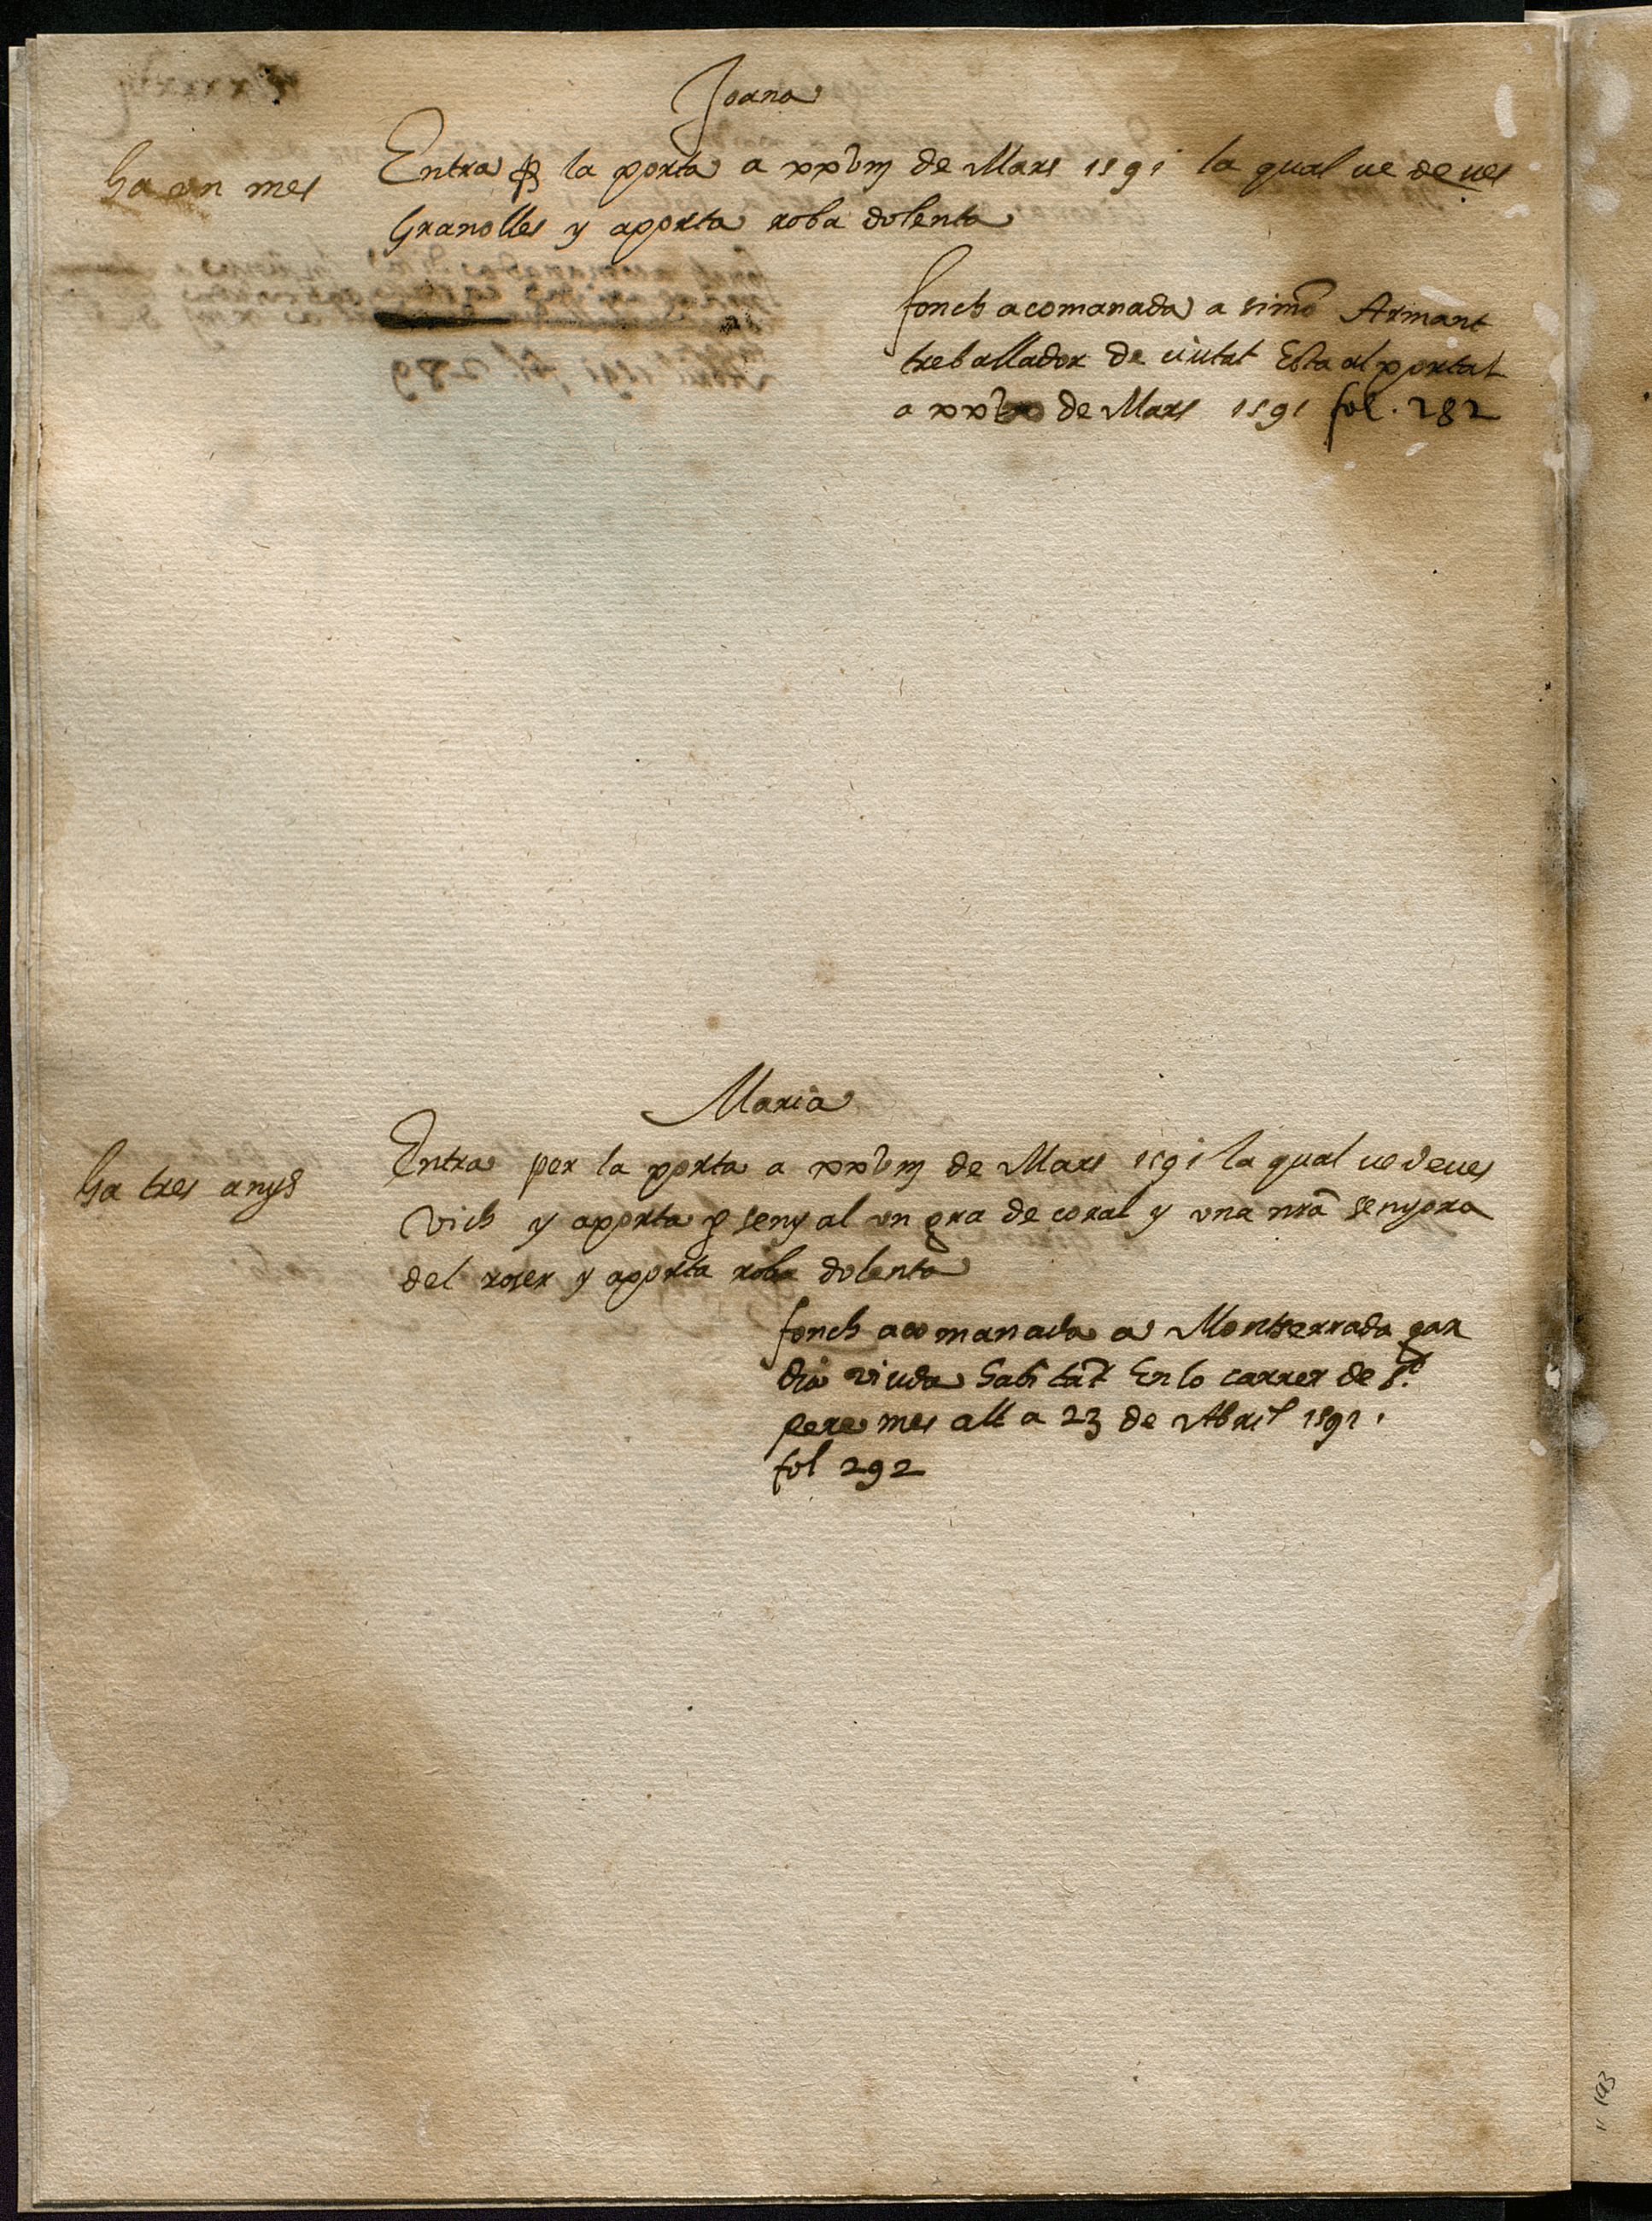 Joana
ha un mes
Entra p la porta a xxviij de Mars 1591 la qual ue deues
Granolles y aporta roba dolenta
fonch acomanada a simo Armant
treballador de ciutat Esta al portal
a de Mars 1591 fol. 282
Maria
ha tres anys
Entra per la porta a xxviij de Mars 1591 la qual ue deues
Vich y aporta p senyal un gra de coral y una nra senyora
del roser y aporta roba dolenta
fonch acomanada a Montserrada gar
dia viuda habitat En lo carrer de St.
pere mes alt a 23 de Abril 1591.
fol 292